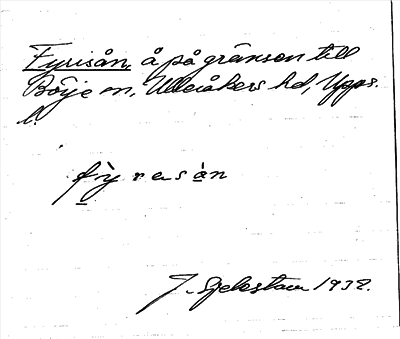 Fyrisån, å på gränsen till
Börje sn, Ulleråkers hd, Upps.
l.
fỳresån
J. Sjelestam 1932.